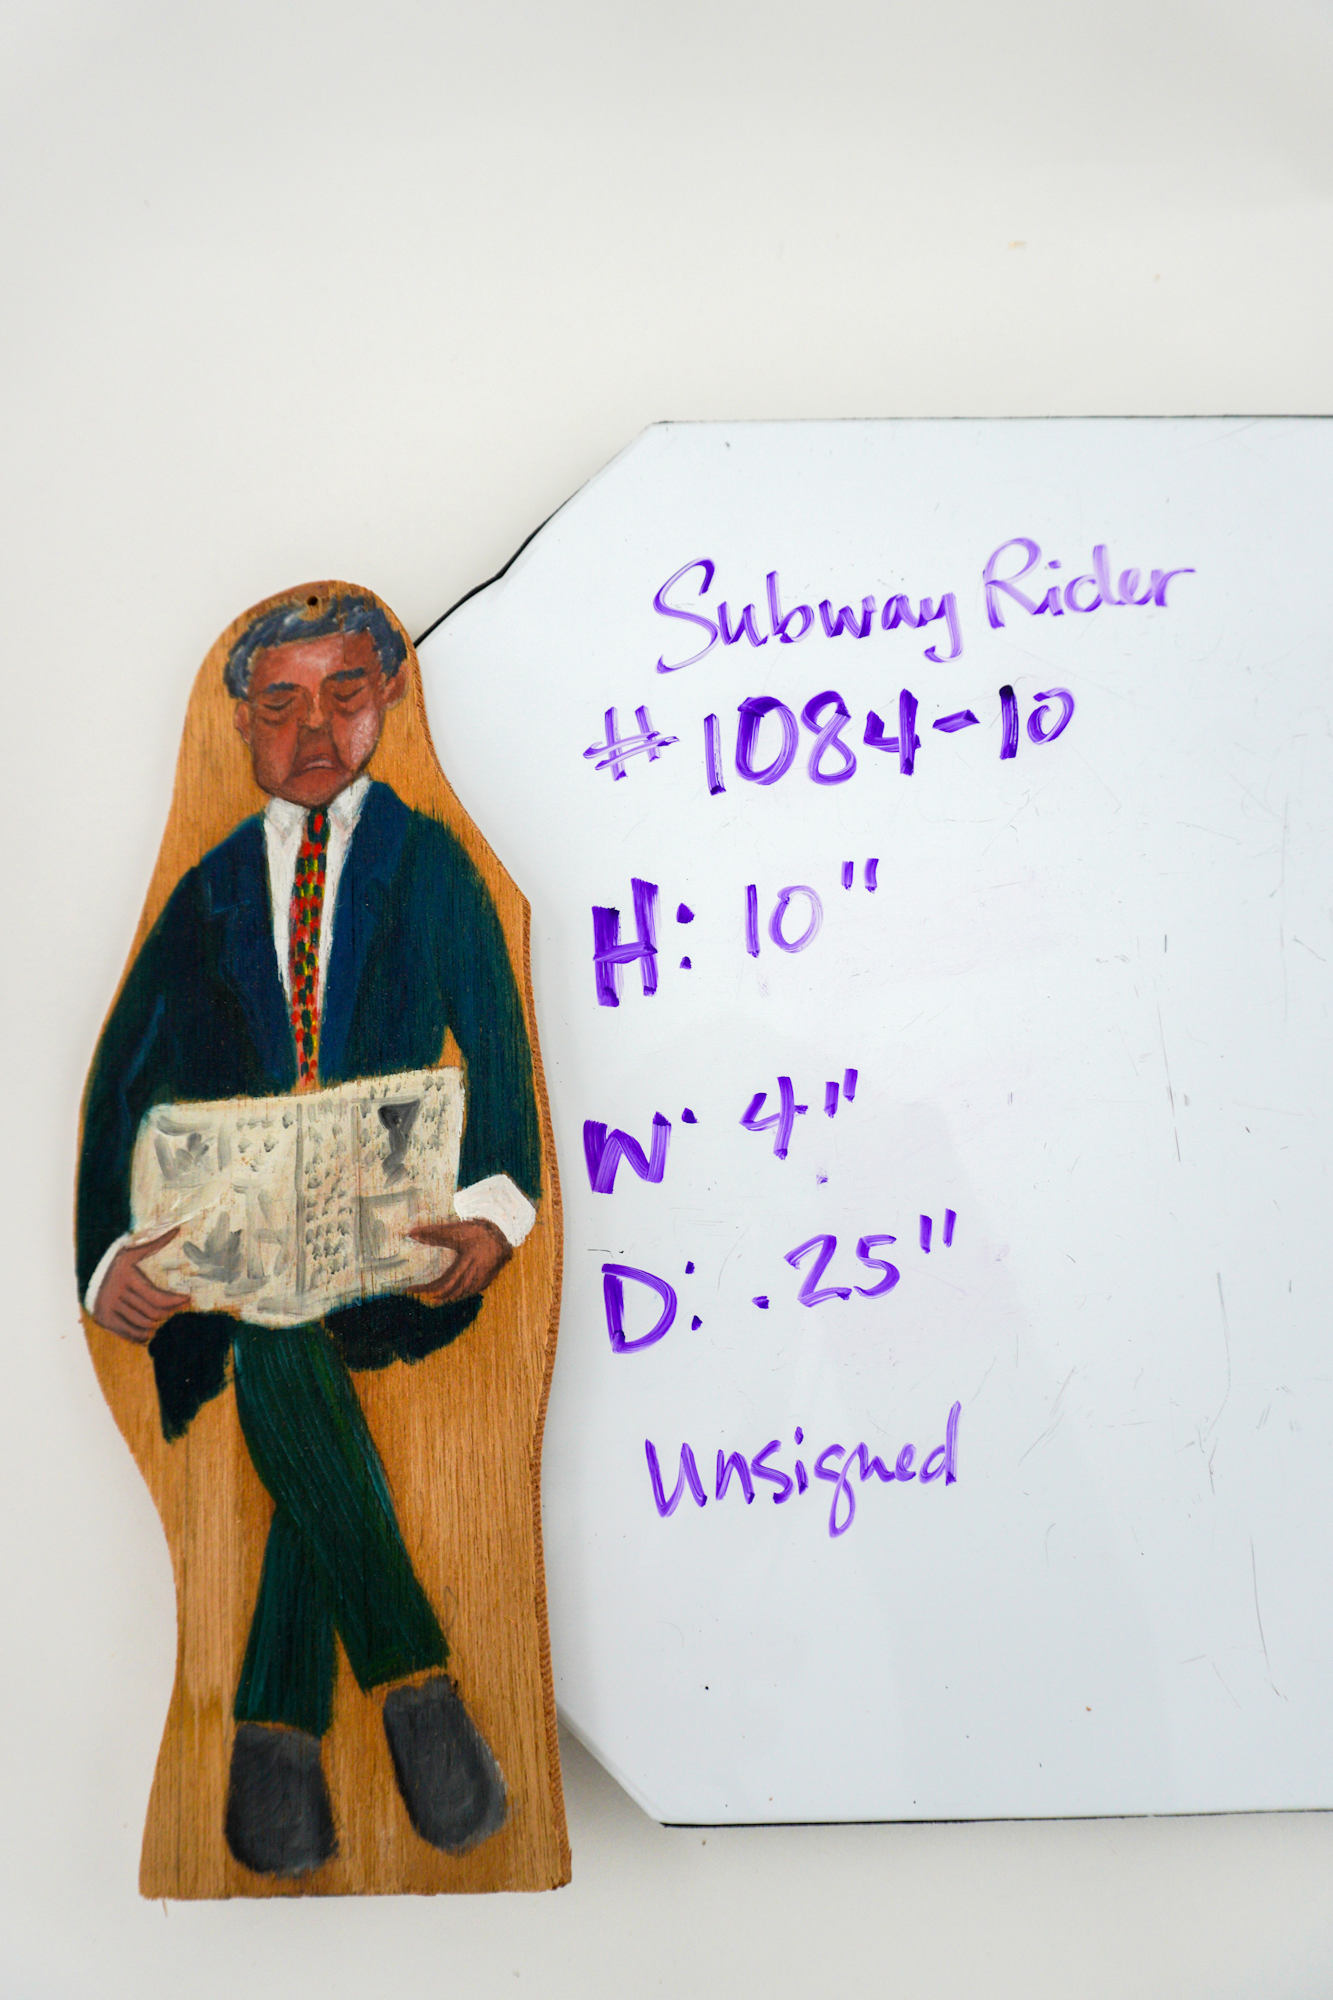 Subway Rider
#1084-10
H: 10"
W: 4"
D: .25"
Unsigned